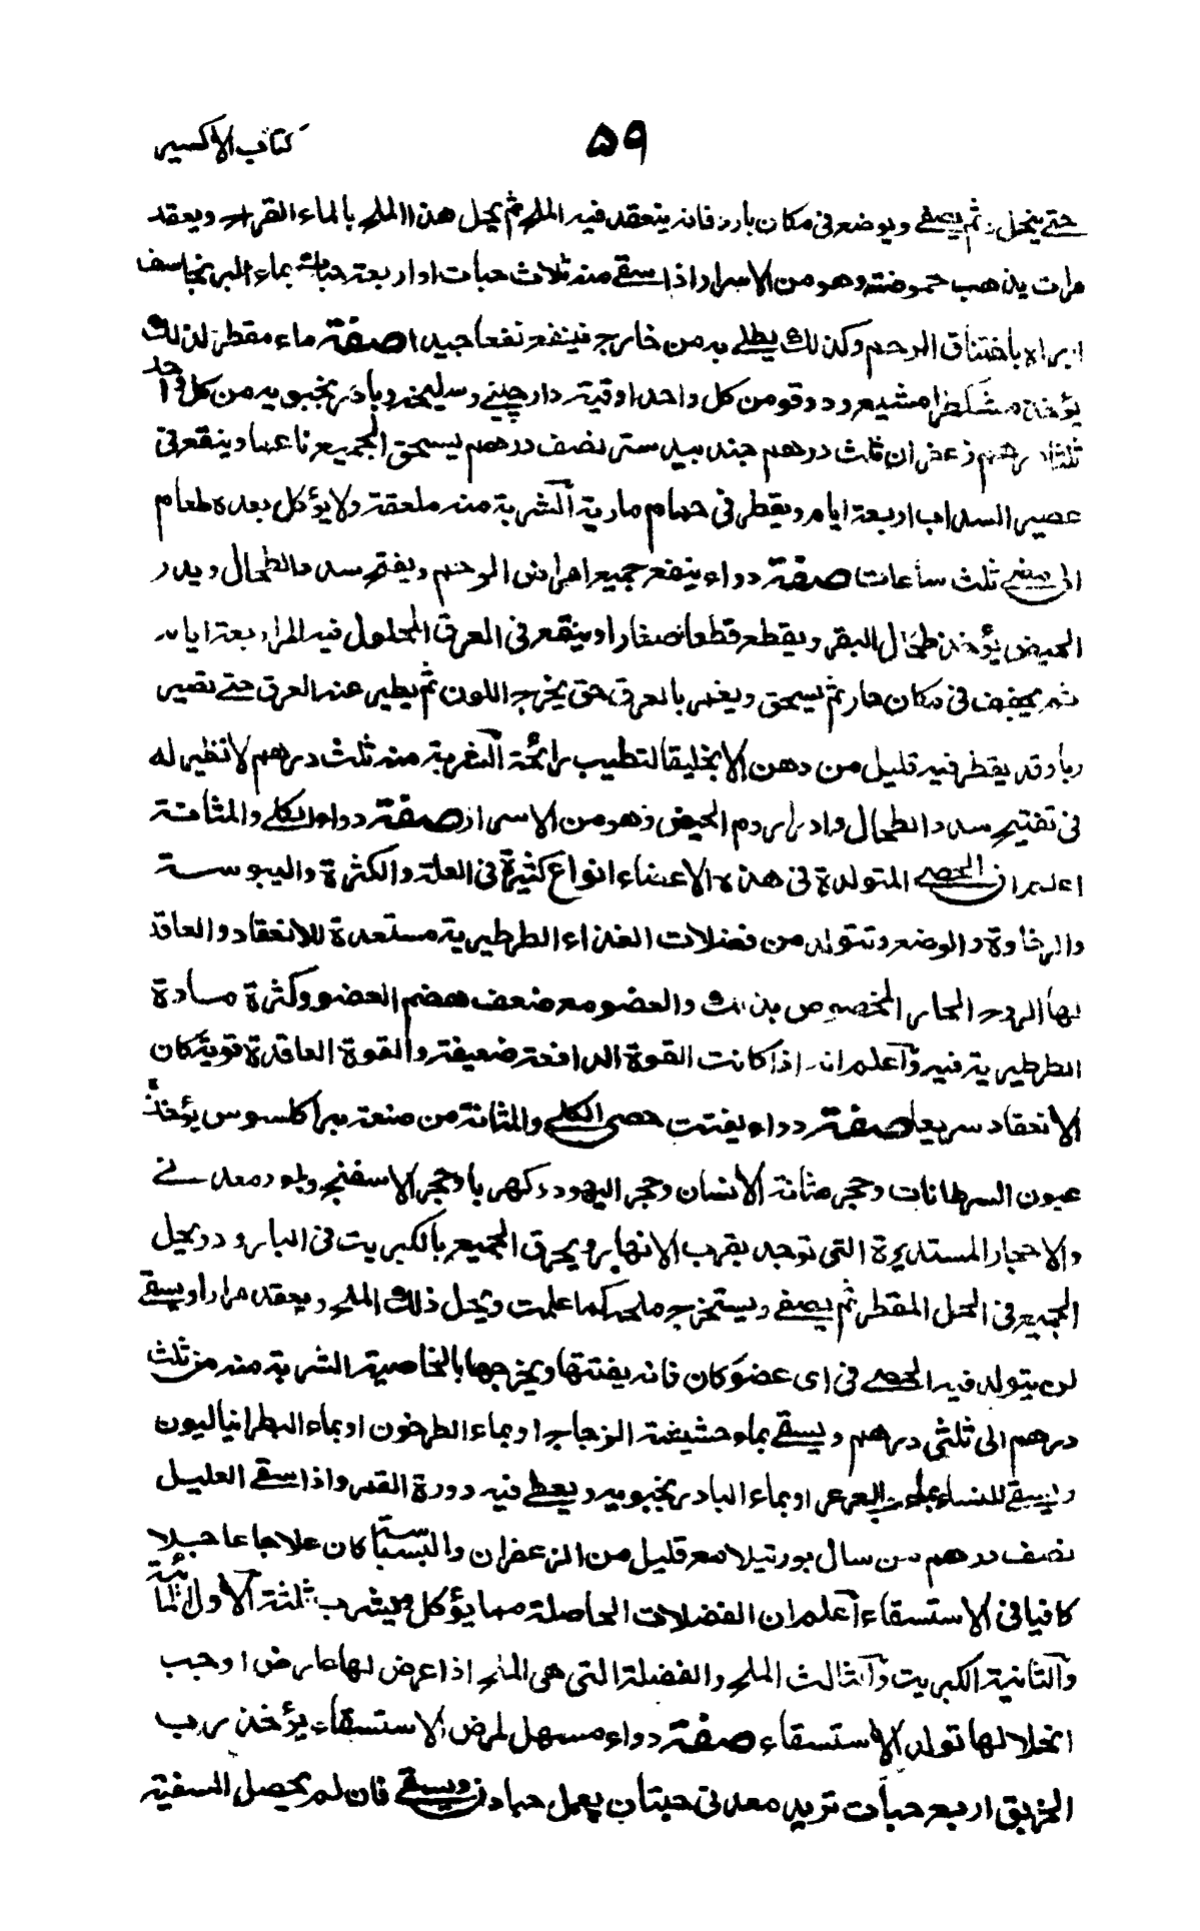 كتاب الاكسير
٥٩
حتى ينحل ثم يصفى ويوضع فى مكان بارد فانه ينعقد فيه الملح ثم يحل هذا الملح بالماء القراح ويعقد
مرات يذهب حموضته وهو من الاسرار اذا سقى منه ثلاث حبات او اربعة حبات بماء البرنجاسف
ابراه باختناق الرحم وكذلك يطلى به من خارج فينفع نفعا جيدا صفة ماء مقطر لذلك
يؤخذ مشكطرامشيع ودوقو من كل واحد اوقية دارچينى وسليخه وبادرنجبويه من كل واحد
ثلثا درهم زعفران ثلث درهم جندبيدستر نصف درهم يسحق الجميع ناعما وينقع فى
عصير السداب اربعة ايام ويقطر فى حمام مارية الشربة منه ملعقة ولا يؤكل بعده طعام
الى مضى ثلث ساعات صفة دواء ينفع جميع امراض الرحم ويفتح سدد الطحال ويدر
الحيض يؤخذ طحال البقر ويقطع قطعا صغارا وينقع فى العرق المحلول فيه المر اربعة ايام
ثم يجفف فى مكان حار ثم يسحق ويغمر بالعرق حتى يخرج اللون ثم يطير عنه العرق حتى تصير
ربا وقد يقطر فيه قليل من دهن الانجليقا لتطيب رائحة الشربة منه ثلث درهم لا نظير له
فى تفتيح سدد الطحال وادرار دم الحيض وهو من الاسرار صفة دواء الكلى والمثانة
اعلم ان الحصى المتولدة فى هذه الاعضاء انواع كثيرة فى العلة والكثرة واليبوسة
والرخاوة والوضع وتتولد من فضلات الغذاء الطرطيرية مستعدة للانعقاد والعاقد
لها الروح الحار المخصوص بذلك والعضو مع ضعف هضم العضو وكثرة مادة
الطرطيرية فيه وآعلم انه اذا كانت القوة الدافعة ضعيفة والقوة العاقدة قوية كان
الانعقاد سريعا صفة دواء يفتت حصى الكلى والمثانة من صنعة براكلسوس يؤخذ
عيون السرطانات وحجر مثانة الانسان وحجر اليهود وكهربا وحجر الاسفنج وبلور معدنى
والاحجار المستديرة التى توجد بقرب الانهار ويحرق الجميع بالكبريت فى البارود ويحل
الجميع فى الخل المقطر ثم يصفى ويستخرج ملحه كما علمت ويحل ذلك الملح ويعقد مرارا ويسقى
لمن يتولد فيه الحصى فى اى عضو كان فانه يفتتها ويخرجها بالخاصية الشربة منه من ثلث
درهم الى ثلثى درهم ويسقى بماء حشيشة الزجاج او بماء الطرخون او بماء البطراناليون
ويسقى للنساء بماء العرعر او بماء البادرنجبويه ويعطى فيه دورة القمر واذا سقى العليل
نصف درهم من سال بورتيلا مع قليل من الزعفران والبسباسة كان علاجا عاجلا
كافيا فى الاستسقاء آعلم ان الفضلات الحاصلة مما يؤكل ويشرب ثلثة آلاول المائية
وآلثانية الكبريت وآلثالث الملح والفضلة التى هى الملح اذا عرض لها عارض اوجب
انحلالها تولد الاستسقاء صفة دواء مسهل لمرض الاستسقاء يؤخذ رب
الخربق اربع حبات تربد معدنى حبتان يعمل حبا ويسقى فان لم يحصل السفية